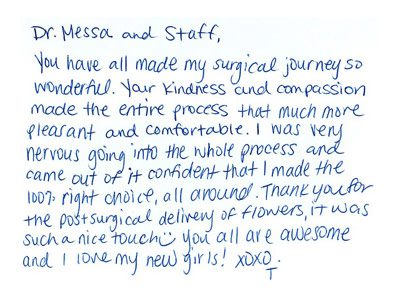 Dr. Messa and Staff,
You have all made my surgical journey so
wonderful. Your kindness and compassion
made the entire process that much more
pleasant and comfortable. I was very
nervous going into the whole process and
came out of it confident that I made the
100% right choice, all around. Thank you for
the postsurgical delivery of flowers, it was
such a nice touch☺ you all are awesome
and I love my new girls! XOXO,
T